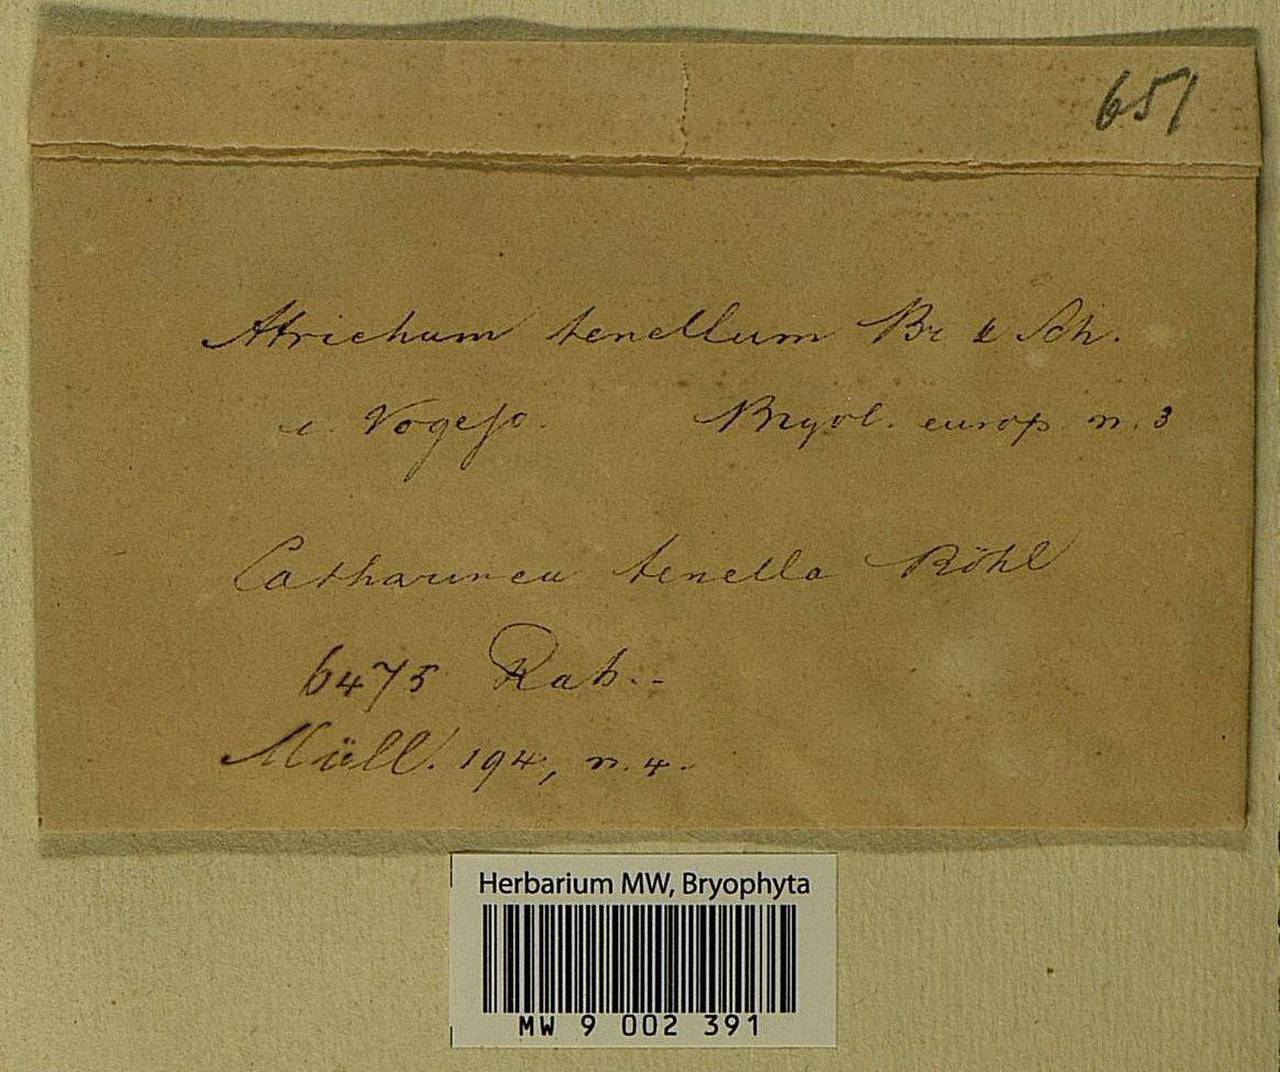 651
Atrichum tenellum Br & Sch.
e. Vogeso. Bryol. europ. n. 3
Catharinea tenella Röhl
6475 Rab..-
Müll. 194, n. 4.
Herbarium MW, Bryophyta
MW 9 002 391